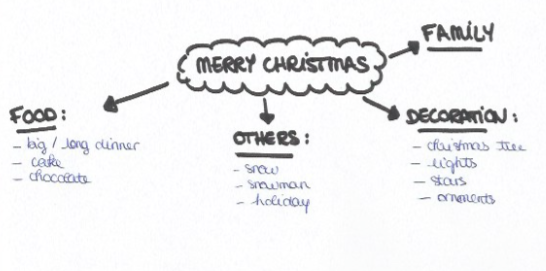 MERRY CHRISTMAS
FAMILY
FOOD:
- big / long dinner
- cake
- chocolate
OTHERS:
- snow
- snowman
- holiday
DECORATION:
- christmas tree
- lights
- stars
- ornments